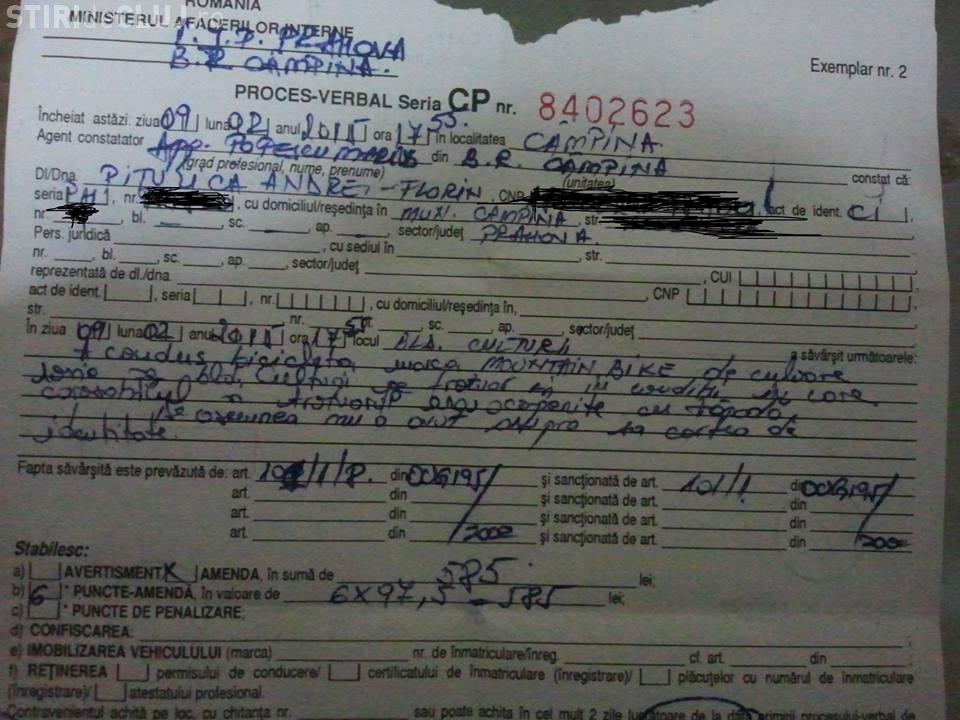 STIRIdeCLUJ.ro
ROMÂNIA
MINISTERUL AFACERILOR INTERNE
I.P.J. PRAHOVA
B.R CAMPINA.
Exemplar nr. 2
PROCES-VERBAL Seria CP nr. 8402623
Încheiat astăzi: ziua 09 luna 02 anul 2015 ora 17 55 în localitatea CÂMPINA
Agent constatator App. POPESCU MARIUS din B.R. CAMPINA constat că:
(grad profesional, nume, prenume) (unitatea)
Dl/Dna PITULICA ANDREI-FLORIN, CNP act de ident. CI
seria PH, nr. , cu domiciliul/reşedinţa în MUN. CAMPINA, str.
nr. , bl. , sc. , ap. , sector/judeţ PRAHOVA.
Pers. juridică , cu sediul în , str.
nr. , bl. , sc. , ap. , sector/judeţ , CUI
reprezentată de dl./dna. , CNP
act de ident. , seria , nr. , cu domiciliul/reşedinţa în,
str. nr. , bl. , sc. , ap. , sector/judeţ
În ziua 09 luna 02 anul 2015 ora 17 locul BLD. CULTURII a săvârşit următoarele:
A condus bicicleta marca MOUNTAIN BIKE de culoare
pe Bld. Culturii pe trotuar în condiţii în care
carosabilul trotuarul erau acoperite cu zăpadă,
De asemenea nu a avut asupra sa cartea de
identitate.
Fapta săvârşită este prevăzută de: art. 101/1/ din OUG195/ şi sancţionată de art. 101/1 din OUG195/
art. din şi sancţionată de art. din
art. din şi sancţionată de art. din
art. din /2002 şi sancţionată de art. din /200
Stabilesc:
a) AVERTISMENT X AMENDA, în sumă de 585 lei;
b) 6 * PUNCTE-AMENDĂ, în valoare de 6X97,5 = 585 lei;
c) * PUNCTE DE PENALIZARE;
d) CONFISCAREA:
e) IMOBILIZAREA VEHICULULUI (marca) nr. de înmatriculare/înreg. cf. art. din
f) REŢINEREA permisului de conducere/ certificatului de înmatriculare (înregistrare)/ plăcuţelor cu numărul de înmatriculare
(înregistrare)/ atestatului profesional.
Contravenientul achită pe loc, cu chitanţa nr. sau poate achita în cel mult 2 zile lucrătoare de la data primirii procesului-verbal de